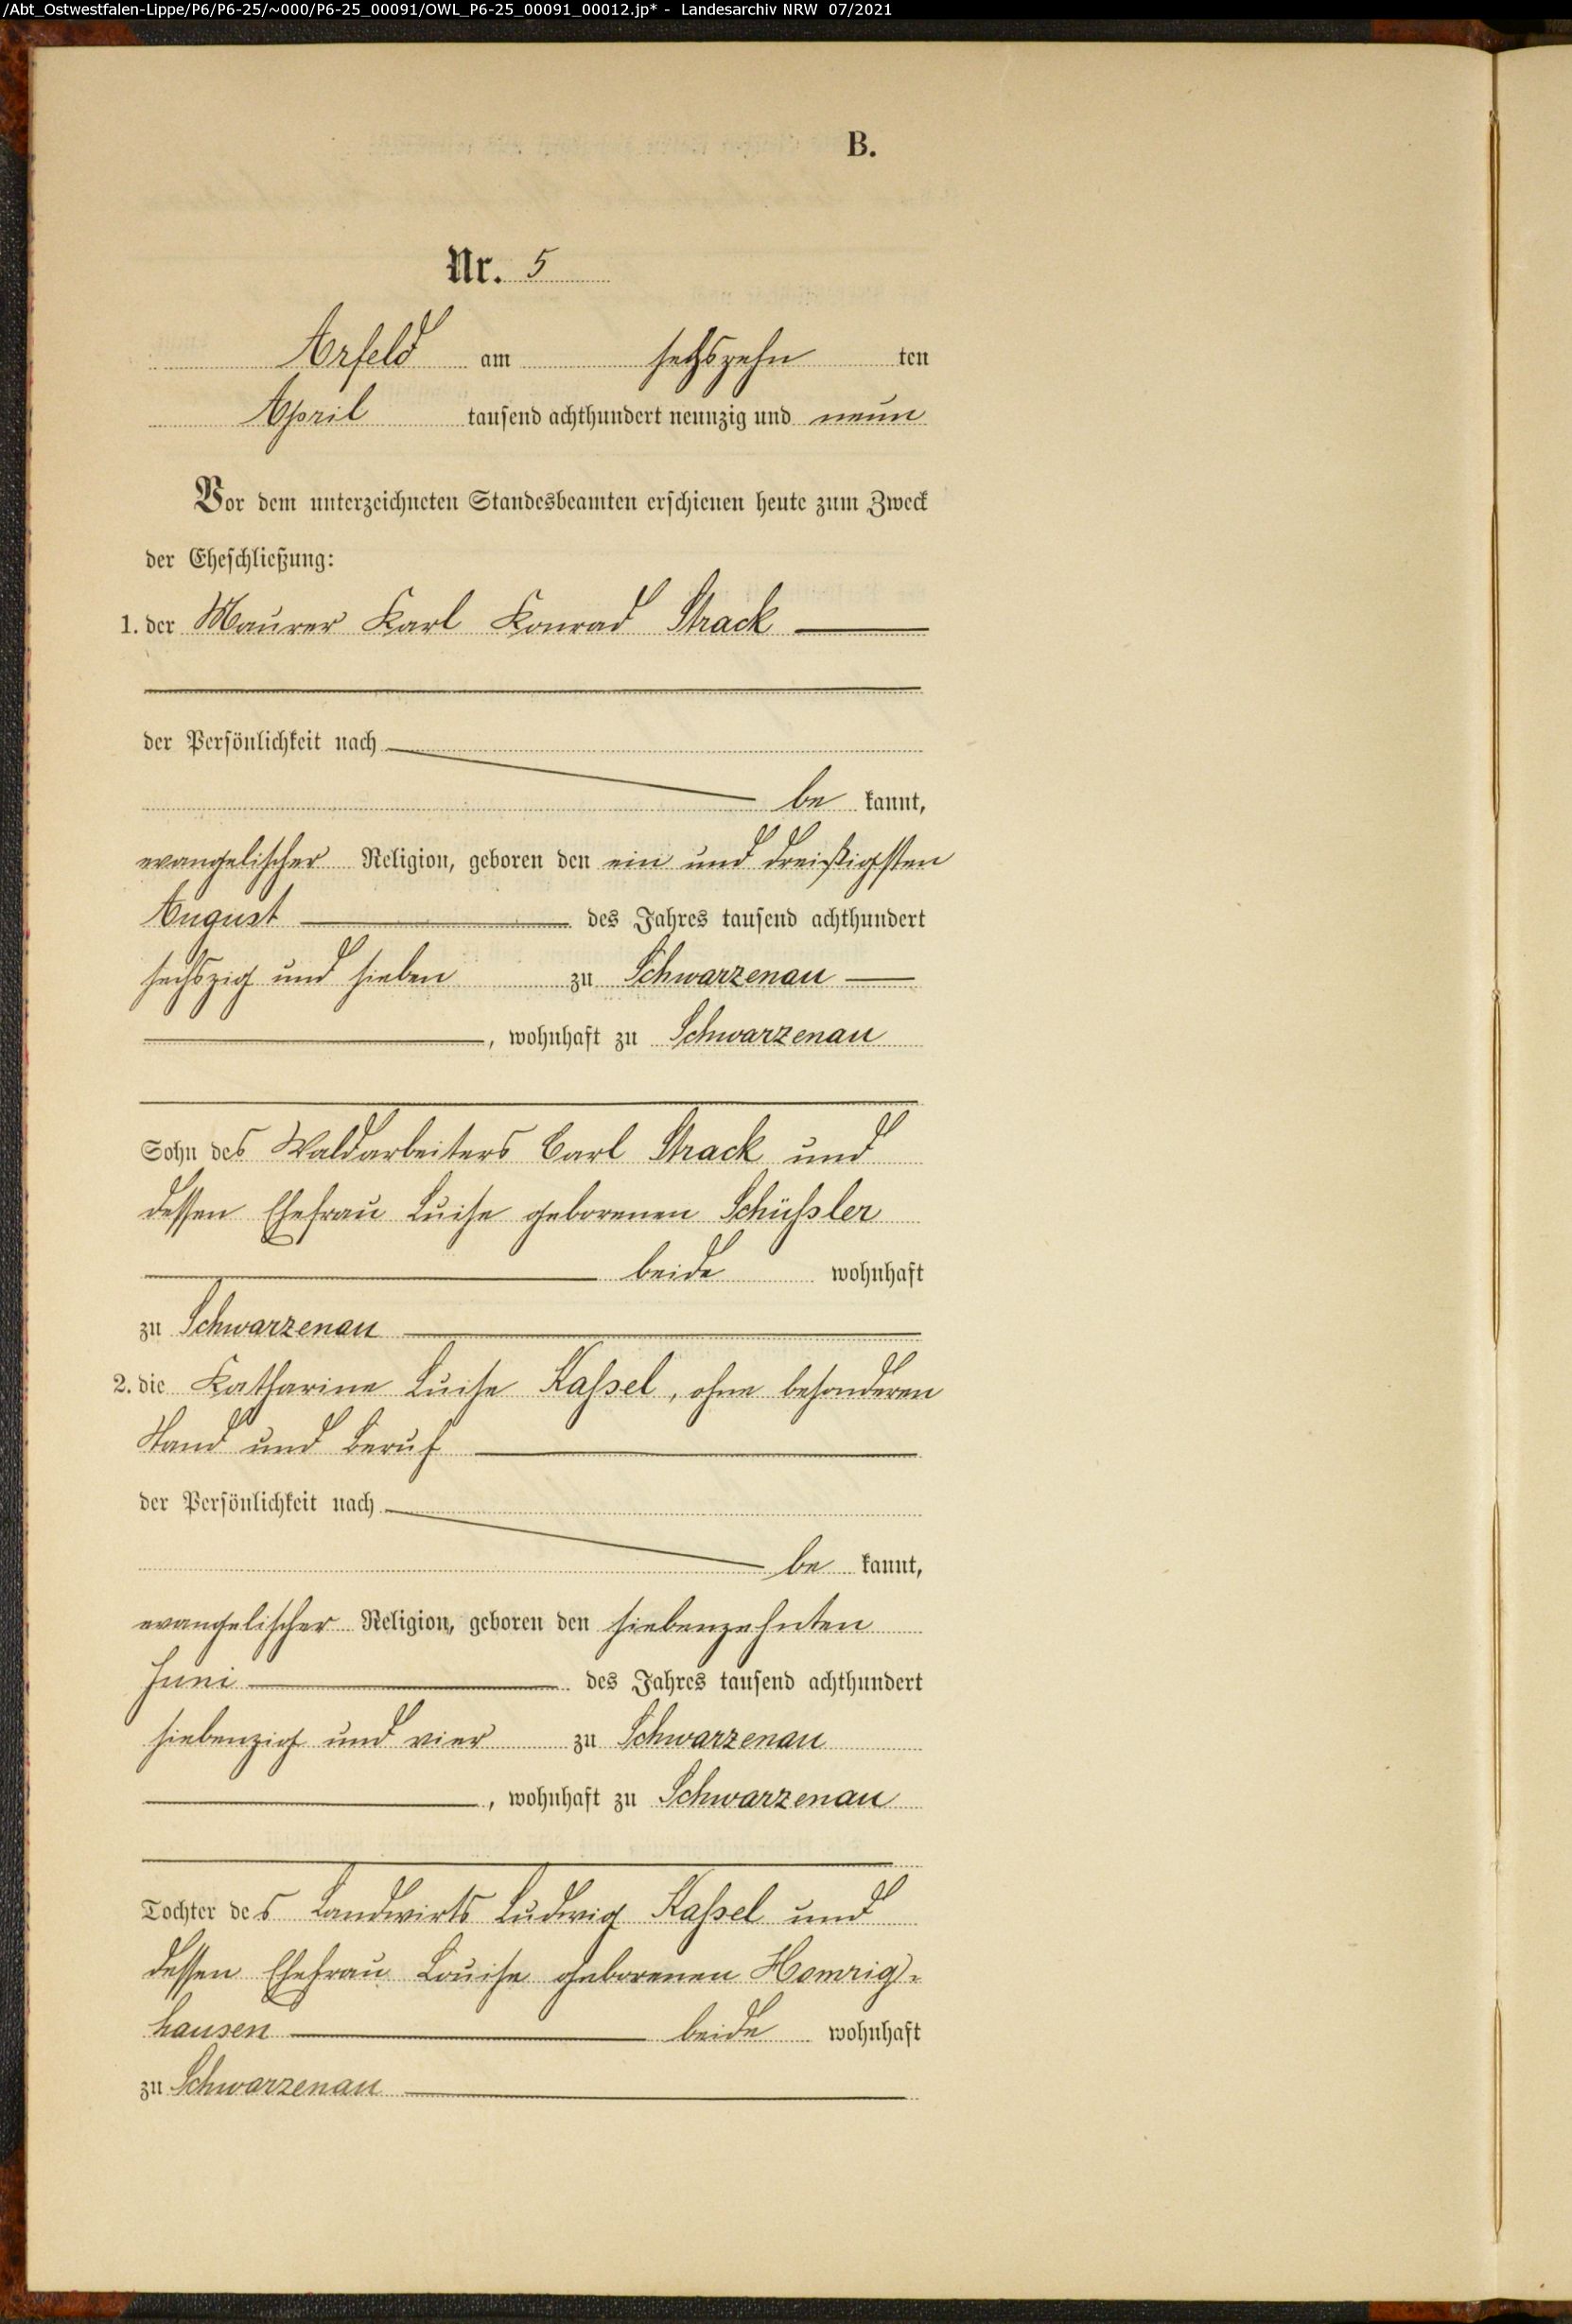 /Abt_Ostwestfalen-Lippe/P6/P6-25/~000/P6-25_00091/OWL_P6-25_00091_00012.jp* - Landesarchiv NRW 07/2021
B.
Nr. 5
Arfeld am sechszehn ten
April tausend achthundert neunzig und neun
Vor dem unterzeichneten Standesbeamten erschienen heute zum Zweck
der Eheschließung:
1. der Maurer Karl Konrad Strack
der Persönlichkeit nach
be kannt,
evangelischer Religion, geboren den ein und dreißigsten
August des Jahres tausend achthundert
sechszig und sieben zu Schwarzenau
, wohnhaft zu Schwarzenau
Sohn des Waldarbeiters Carl Strack und
dessen Ehefrau Luise geborenen Schüssler
beide wohnhaft
zu Schwarzenau
2. die Katharine Luise Kassel, ohne besonderen
Stand und Beruf
der Persönlichkeit nach
be kannt,
evangelischer Religion, geboren den siebenzehnten
Juni des Jahres tausend achthundert
siebenzig und vier zu Schwarzenau
, wohnhaft zu Schwarzenau
Tochter des Landwirts Ludwig Kassel und
dessen Ehefrau Louise geborenen Homrig-
hausen beide wohnhaft
zu Schwarzenau